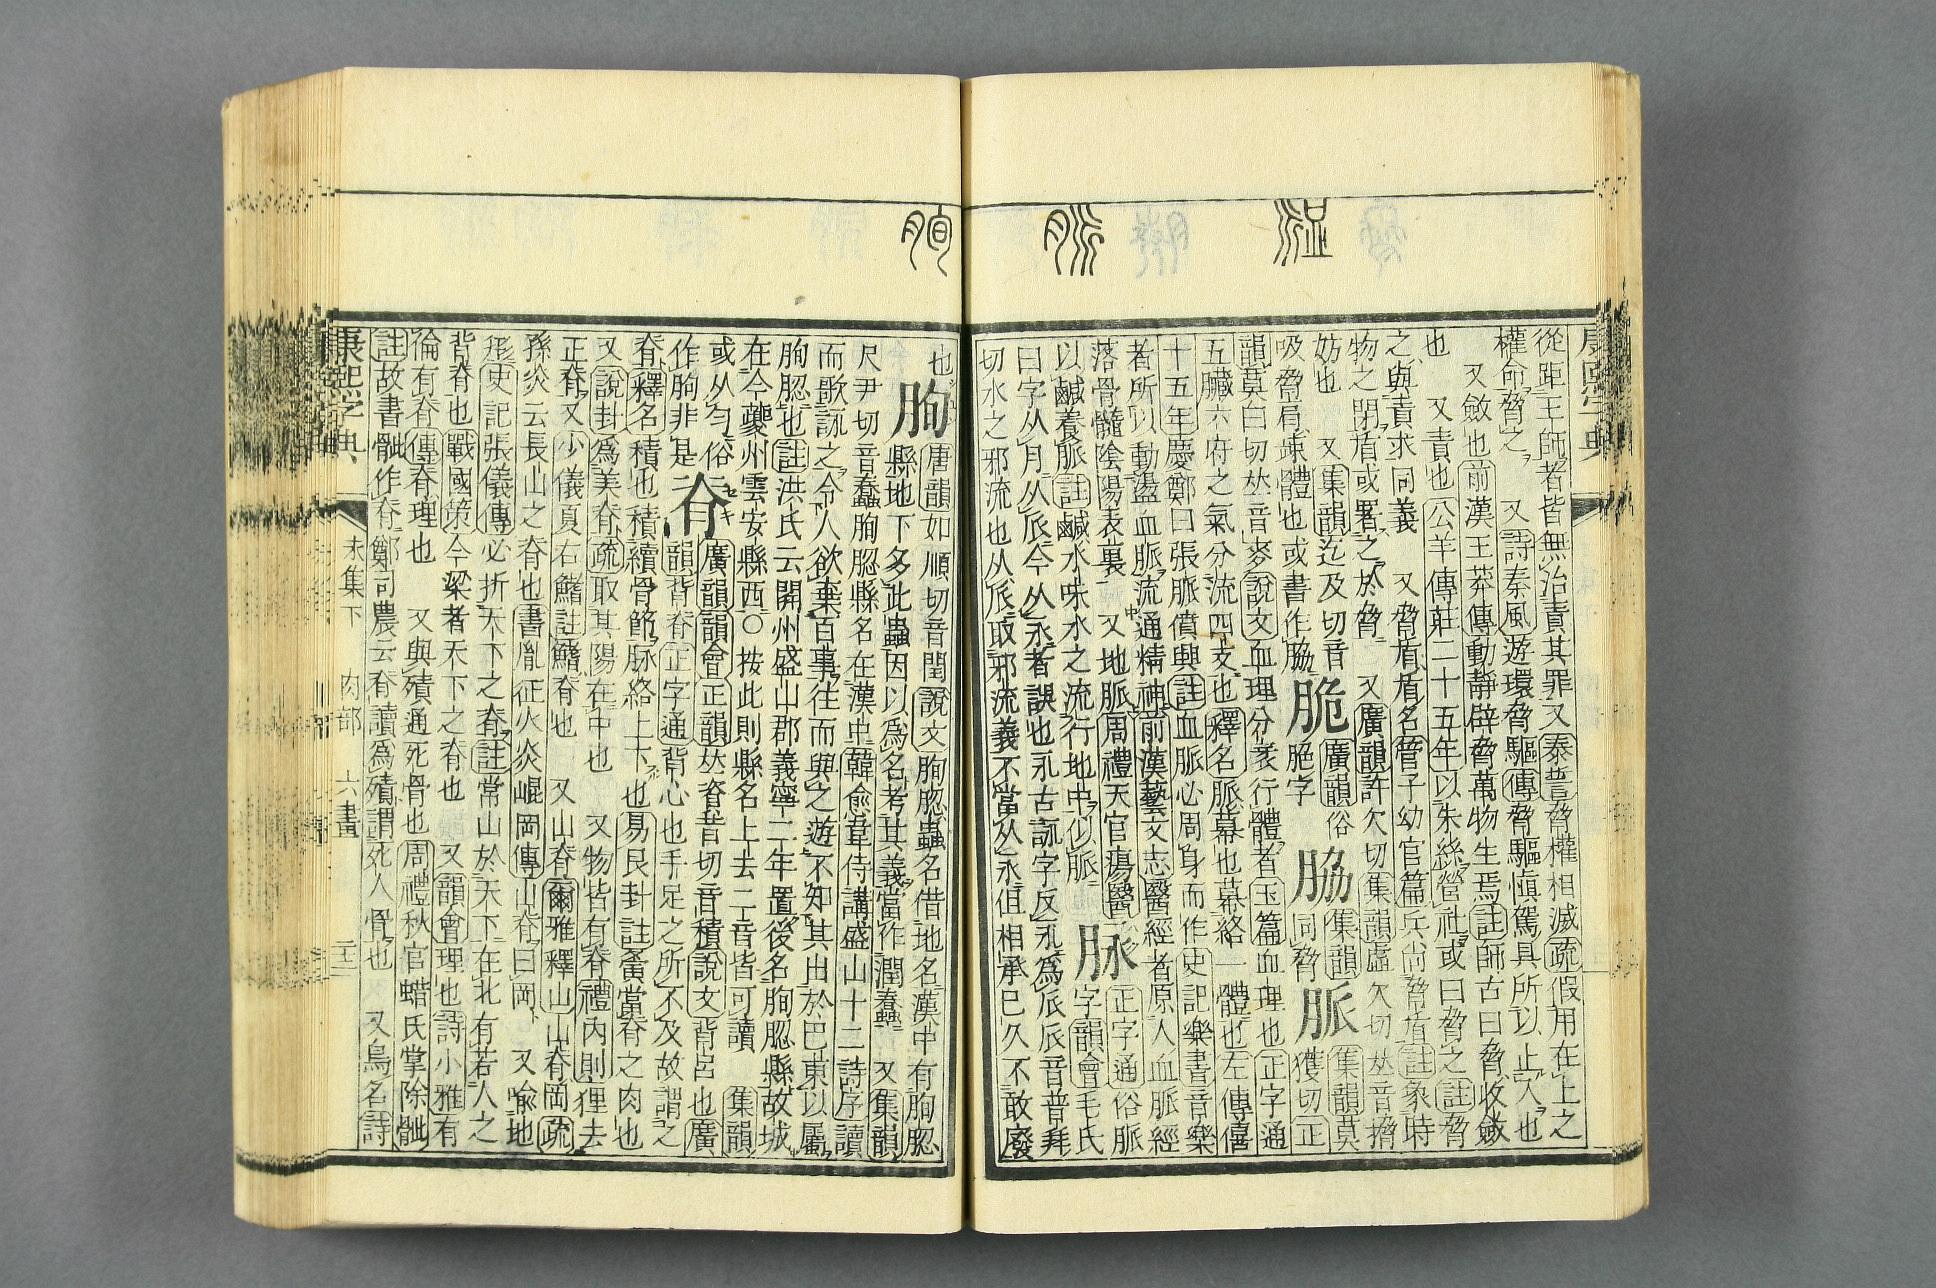 康熙字典
從距王師者皆無治責其罪又泰誓脅權相滅疏假用在上之
權命脅之 又詩秦風遊環脅驅傳脅驅愼駕具所以止入也
又斂也前漢王莽傳動靜辟脅萬物生焉註師古曰脅收斂
也 又責也公羊傳莊二十五年以朱絲營社或曰脅之註脅
之與責求同義 又脅盾盾名管子幼官篇兵尚脅盾註象時
物之閉盾或署之於脅 又廣韻許欠切集韻虛欠切𠀤音
妨也 又集韻迄及切音
吸脅肩竦體也或書作脇
脆 廣韻俗脃字
脇 集韻同脅
脈 集韻莫獲切正
韻莫白切𠀤音麥說文血理分衺行體者玉篇血理也正字通
五臟六府之氣分流四支也釋名脈幕也幕絡一體也左傳僖
十五年慶鄭曰張脈僨興註血脈心周身而作史記樂書音樂
者所以動盪血脈流通精神前漢藝文志醫經者原人血脈經
落骨髓陰陽表裏 又地脈周禮天官瘍醫
以鹹養脈註鹹水味水之流行地中似脈
脉 正字通俗脈字韻會毛氏
曰字从月从𠂢今从永者誤也永古詠字反永爲𠂢𠂢音普拜
切水之邪流也从𠂢取邪流義不當从永但相承已久不敢廢
也
朐 唐韻如順切音閏說文朐䏰蟲名借地名漢中有朐䏰
縣地下多此蟲因以爲名考其義當作潤蠢 又集韻
尺尹切音蠢朐䏰縣名在漢中韓愈韋侍講盛山十二詩序讀
而歌詠之令人欲棄百事往而與之遊不知其出於巴東以屬
朐䏰也註洪氏云開州盛山郡義寧二年置後名朐䏰縣故城
在今夔州雲安縣西○按此則縣名上去二音皆可讀 集韻
或从匀俗
作朐非是
脊 廣韻韻會正韻𠀤資昔切音積說文背呂也廣
韻背脊正字通背心也手足之所不及故謂之
脊釋名積也積續骨節脉絡上下也易艮卦註當脊之肉也
又說卦爲美脊疏取其陽在中也 又物皆有脊禮內則狸去
正脊又少儀夏右鰭註鰭脊也 又山脊爾雅釋山山脊岡疏
孫炎云長山之脊也書胤征火炎崐岡傳山脊曰岡 又喻地
形史記張儀傳必折天下之脊註常山於天下在北有若人之
背脊也戰國策今梁者天下之脊也 又韻會理也詩小雅有
倫有脊傳脊理也 又與㱴通死骨也周禮秋官蜡氏掌除骴
註故書骴作脊鄭司農云脊讀爲㱴謂死人骨也 又鳥名詩
康熙字典 未集下 肉部 六畫